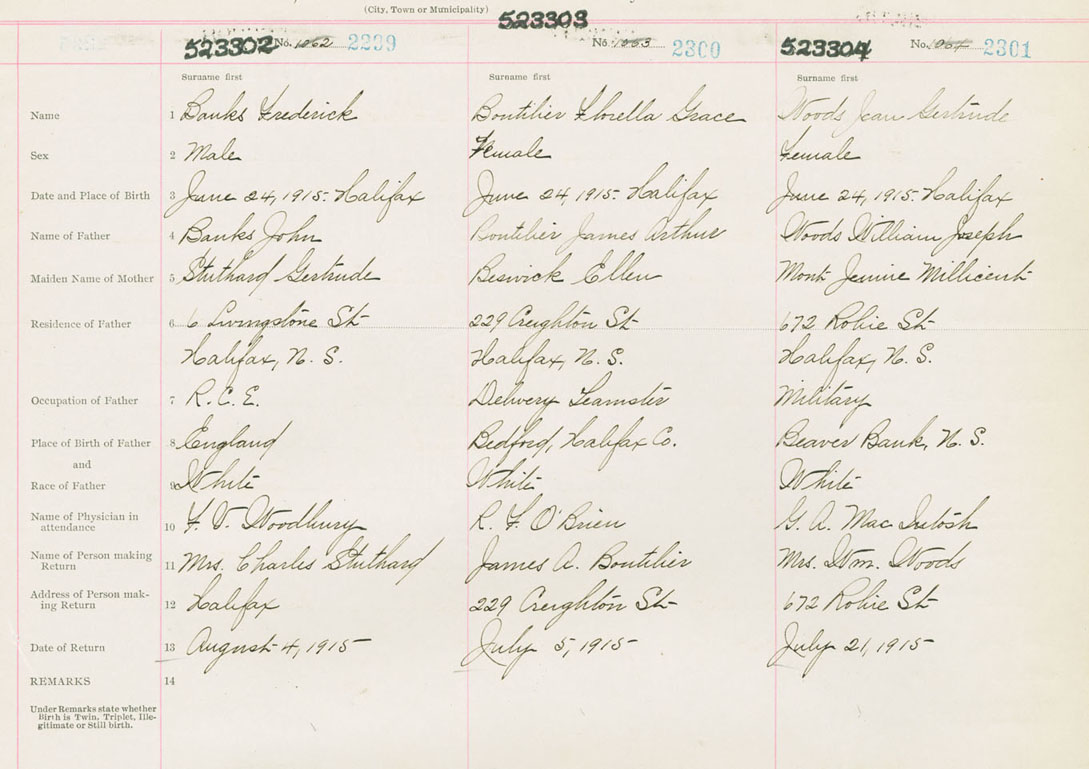 (City, Town or Municipality)
523302 No. 1062 2299
523303 No. 1063 2300
523304 No. 1064 2301
Surname first Surname first Surname first
Name 1 Banks Frederick Boutilier Florella Grace Woods Jean Gertrude
Sex 2 Male Female Female
Date and Place of Birth 3 June 24, 1915 - Halifax June 24, 1915 - Halifax June 24, 1915 - Halifax
Name of Father 4 Banks John Boutilier James Arthur Woods William Joseph
Maiden Name of Mother 5 Stuthard Gertrude Beswick Ellen Mont Jennie Millicent
Residence of Father 6 6 Livingstone St 229 Creighton St 672 Robie St
Halifax, N. S. Halifax, N. S. Halifax, N. S.
Occupation of Father 7 R. C. E. Delivery Teamster Military
Place of Birth of Father 8 England Bedford, Halifax Co. Beaver Bank, N. S.
and
Race of Father 9 White White White
Name of Physician in
attendance 10 F. V. Woodbury R. F. O'Brien G. A. Mac Intosh
Name of Person making
Return 11 Mrs. Charles Stuthard James A. Boutilier Mrs. Wm. Woods
Address of Person mak-
ing Return 12 Halifax 229 Creighton St 672 Robie St
Date of Return 13 August 4, 1915 July 5, 1915 July 21, 1915
REMARKS 14
Under Remarks state whether
Birth is Twin, Triplet, Ille-
gitimate or Still birth.